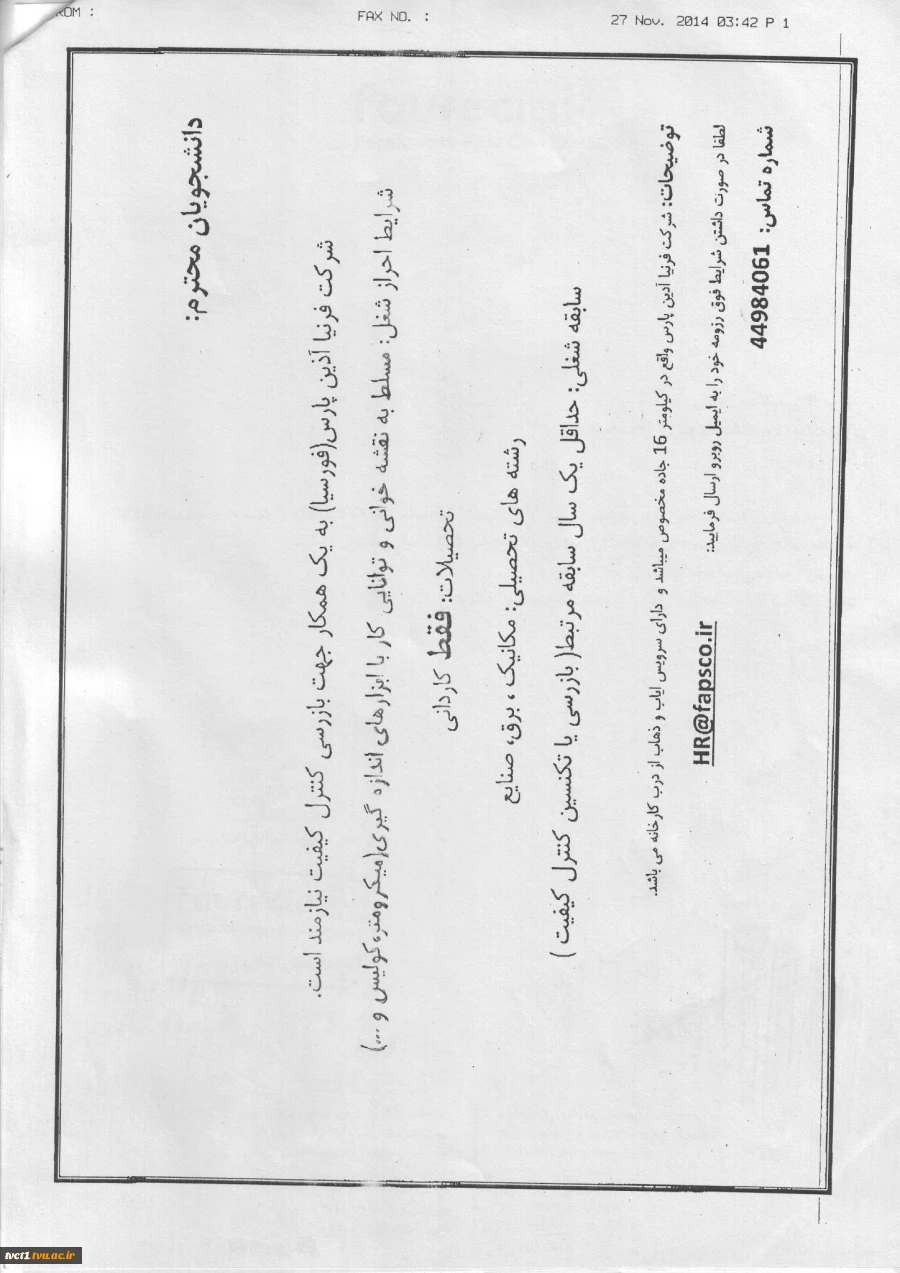 FAX NO. :
27 Nov. 2014 03:42 P 1
دانشجویان محترم:
شرکت فرنیا آذین پارس(فورسیا) به یک همکار جهت بازرسی کنترل کیفیت نیازمند است.
شرایط احراز شغل: مسلط به نقشه خوانی و توانایی کار با ابزارهای اندازه گیری(میکرومتر،کولیس و ...)
تحصیلات: فقط کاردانی
رشته های تحصیلی: مکانیک ، برق، صنایع
سابقه شغلی: حداقل یک سال سابقه مرتبط( بازرسی یا تکنسین کنترل کیفیت )
توضیحات: شرکت فرنیا آذین پارس واقع در کیلومتر 16 جاده مخصوص میباشد و دارای سرویس ایاب و ذهاب از درب کارخانه می باشد.
لطفا در صورت داشتن شرایط فوق رزومه خود را به ایمیل روبرو ارسال فرمایید: HR@fapsco.ir
شماره تماس: 44984061
tvct1.tvu.ac.ir